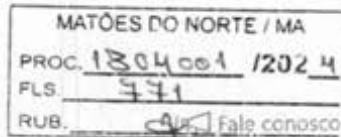 MATÕES DO NORTE / MA
PROC. 1304001 /2024
FLS. 771
RUB. Fale conosco